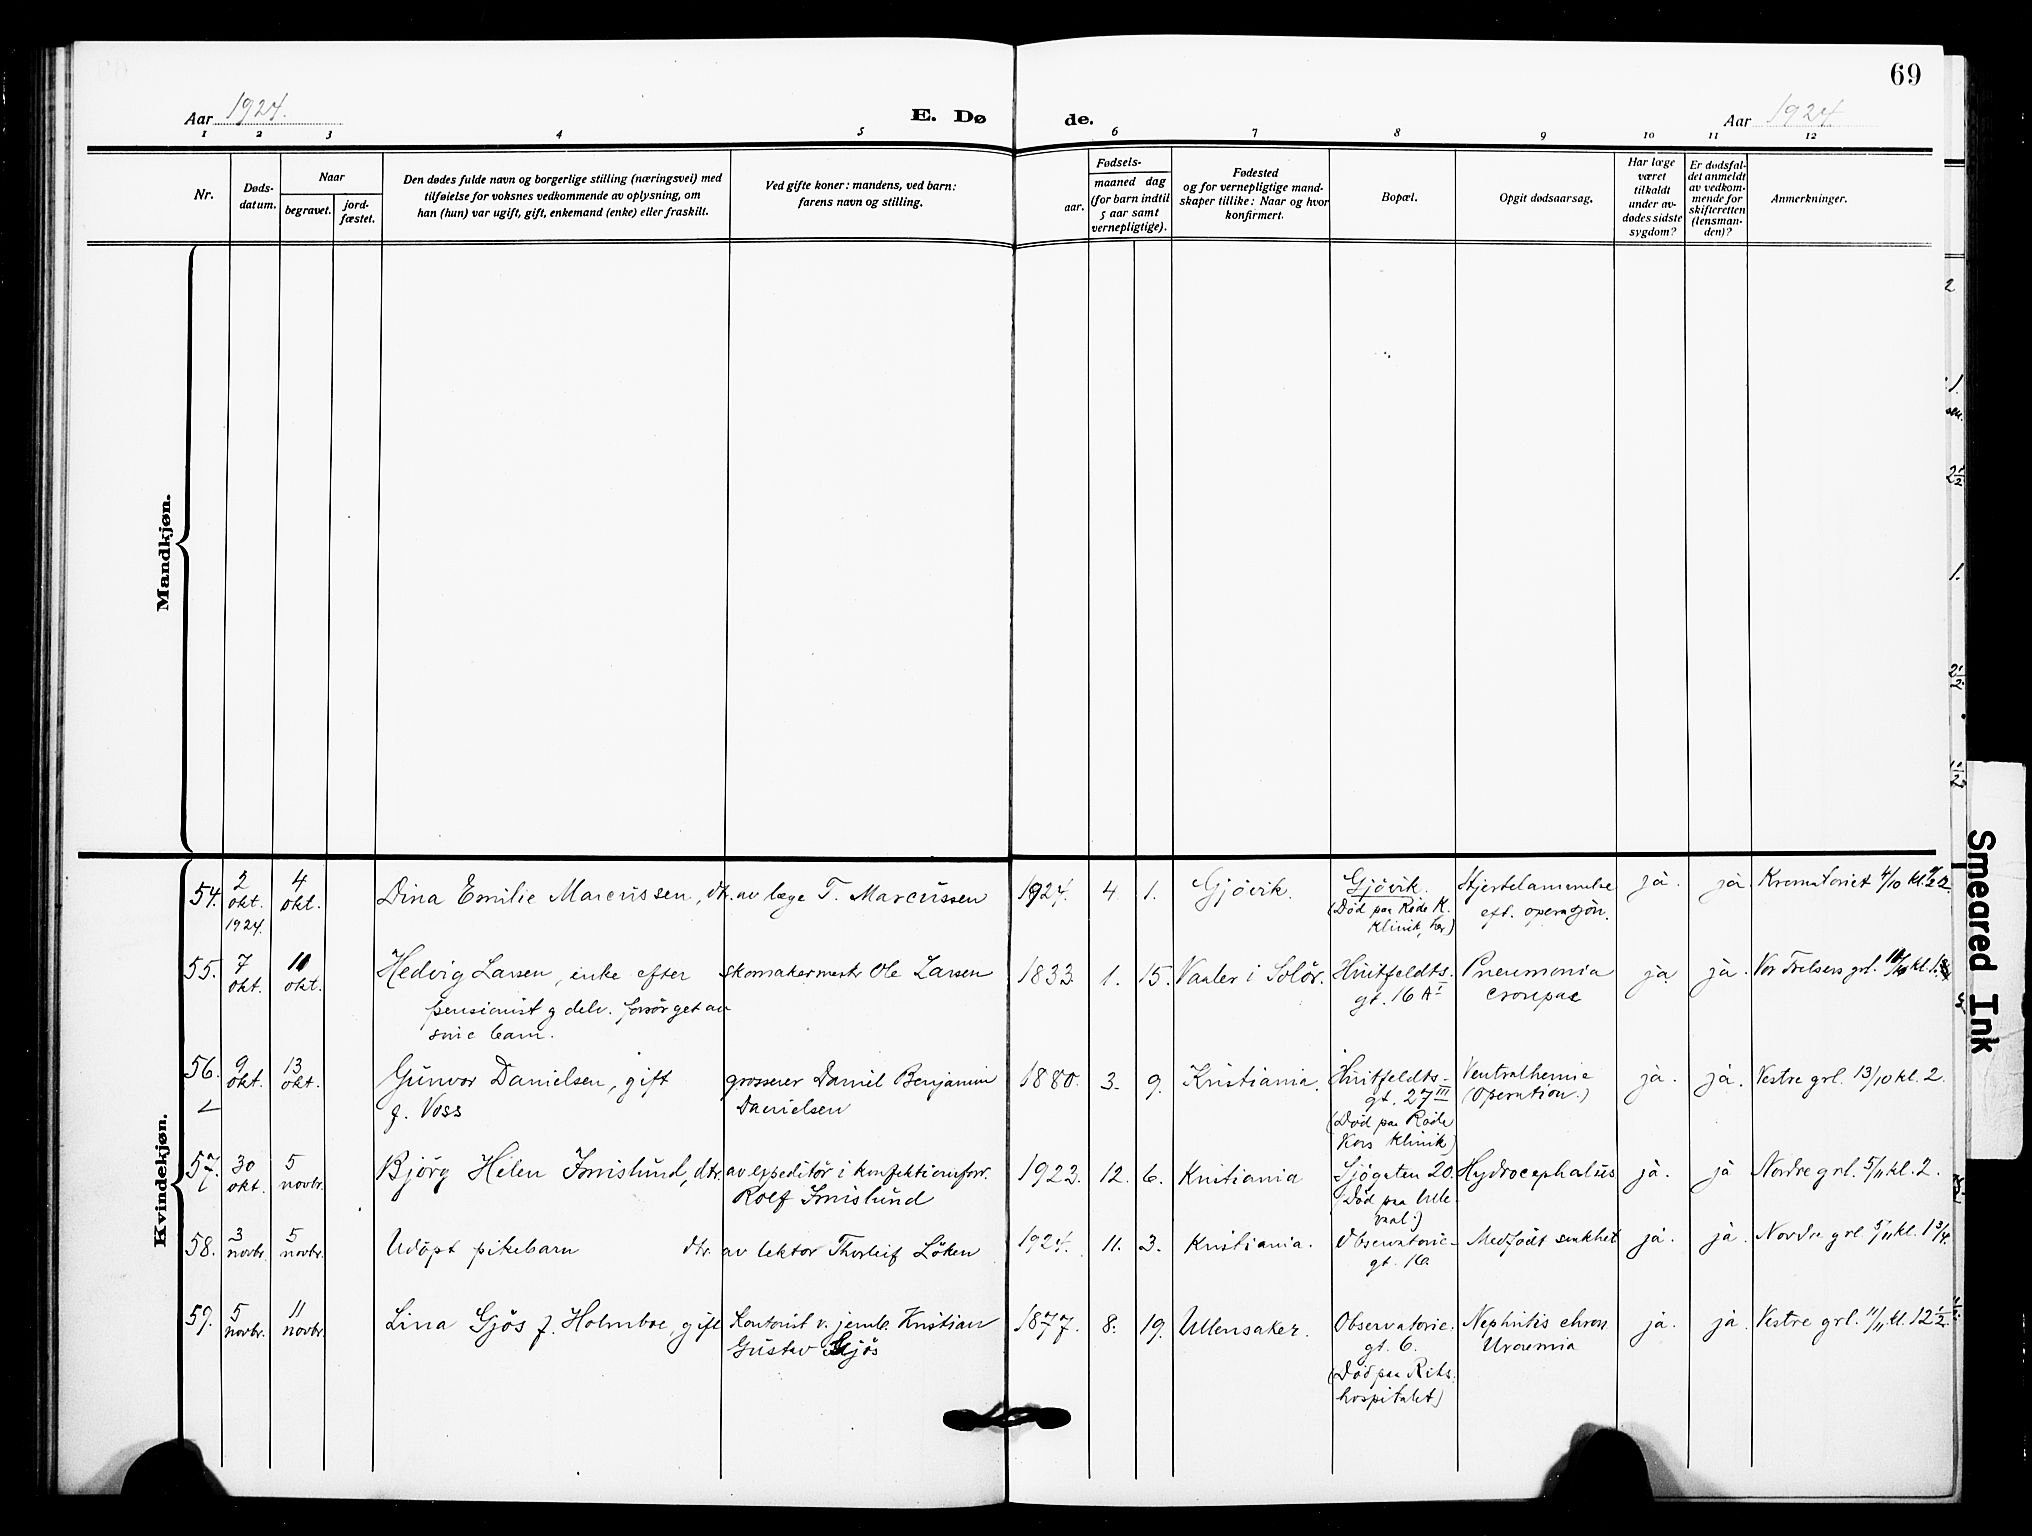 69
Aar 1924.
E. Dø
de.
Aar 1924
1 2 3 4 5 6 7 8 9 10 11 12
Nr.
Døds-
datum.
Naar
begravet.
jord-
fæstet.
Den dødes fulde navn og borgerlige stilling (næringsvei) med
tilføielse for voksnes vedkommende av oplysning, om
han (hun) var ugift, gift, enkemand (enke) eller fraskilt.
Ved gifte koner: mandens, ved barn:
farens navn og stilling.
Fødsels-
aar.
maaned dag
(for barn indtil
5 aar samt
vernepligtige).
Fødested
og for vernepligtige mand-
skaper tillike: Naar og hvor
konfirmert.
Bopæl.
Opgit dødsaarsag.
Har læge
været
tilkaldt
under av-
dødes sidste
sygdom?
Er dødsfal-
det anmeldt
av vedkom-
mende for
skifteretten
(lensman-
den)?
Anmerkninger.
Mandkjøn.
Kvindekjøn.
54. 2 okt. 1924. 4 okt. Dina Emilie Marcussen, dtr. av læge T. Marcussen 1924. 4. 1. Gjövik. Gjövik.
(Död paa Röde K.
Klinik, her)
eft. operasjon.
ja. ja Krematoriet 4/10 kl.
55. 7 okt. 11 okt. Hedvig Larsen, enke efter skomakermestr Ole Larsen 1833. 1. 15. Vaaler i Solör. Huitfeldts-
gt. 16 A I
Pneumonia
crouposa
pensionist g delv. forsörget av
sine barn.
ja ja. Vor Frelsers grl. 11/10 kl.
56. 9 okt. 13 okt. Gunvor Danielsen, gift grosserer Daniel Benjamin 1880. 3. 9. Kristiania. Huitfeldts-
gt. 27 III
f. Voss Danielsen
(Död paa Röde
Kors Klinik)
Ventralhernie
(Operation.)
ja. ja. Vestre grl. 13/10 kl. 2.
57. 30 okt. 5 novbr. Bjørg Helen Imislund, dtr. av expeditör i konfektionsforr. 1923. 12. 6. Kristiania Sjögaten 20. Hydrocephalus ja. ja Nordre grl. 5/11 kl. 2.
Rolf Imislund
(Död paa Ulle-
vaal.)
58. 3 novbr. 5 novbr. Udöpt pikebarn dtr. av lektor Thorleif Löken 1924. 11. 3. Kristiania. Observatorie-
gt. 10.
Medfödt svakhet ja. ja. Nordre grl. 5/11 kl. 1 3/4.
59. 5 novbr. 11 novbr. Lina Gjös f. Holmboe, gift Kontorist v. jernb. Kristian 1877. 8. 19. Ullensaker. Observatorie-
gt. 6.
Gustav Gjös
(Död paa Riks-
hospitalet)
Nephritis chron
Uraemia
ja. ja. Vestre grl. 11/11 kl. 12 1/2.
Smeared Ink